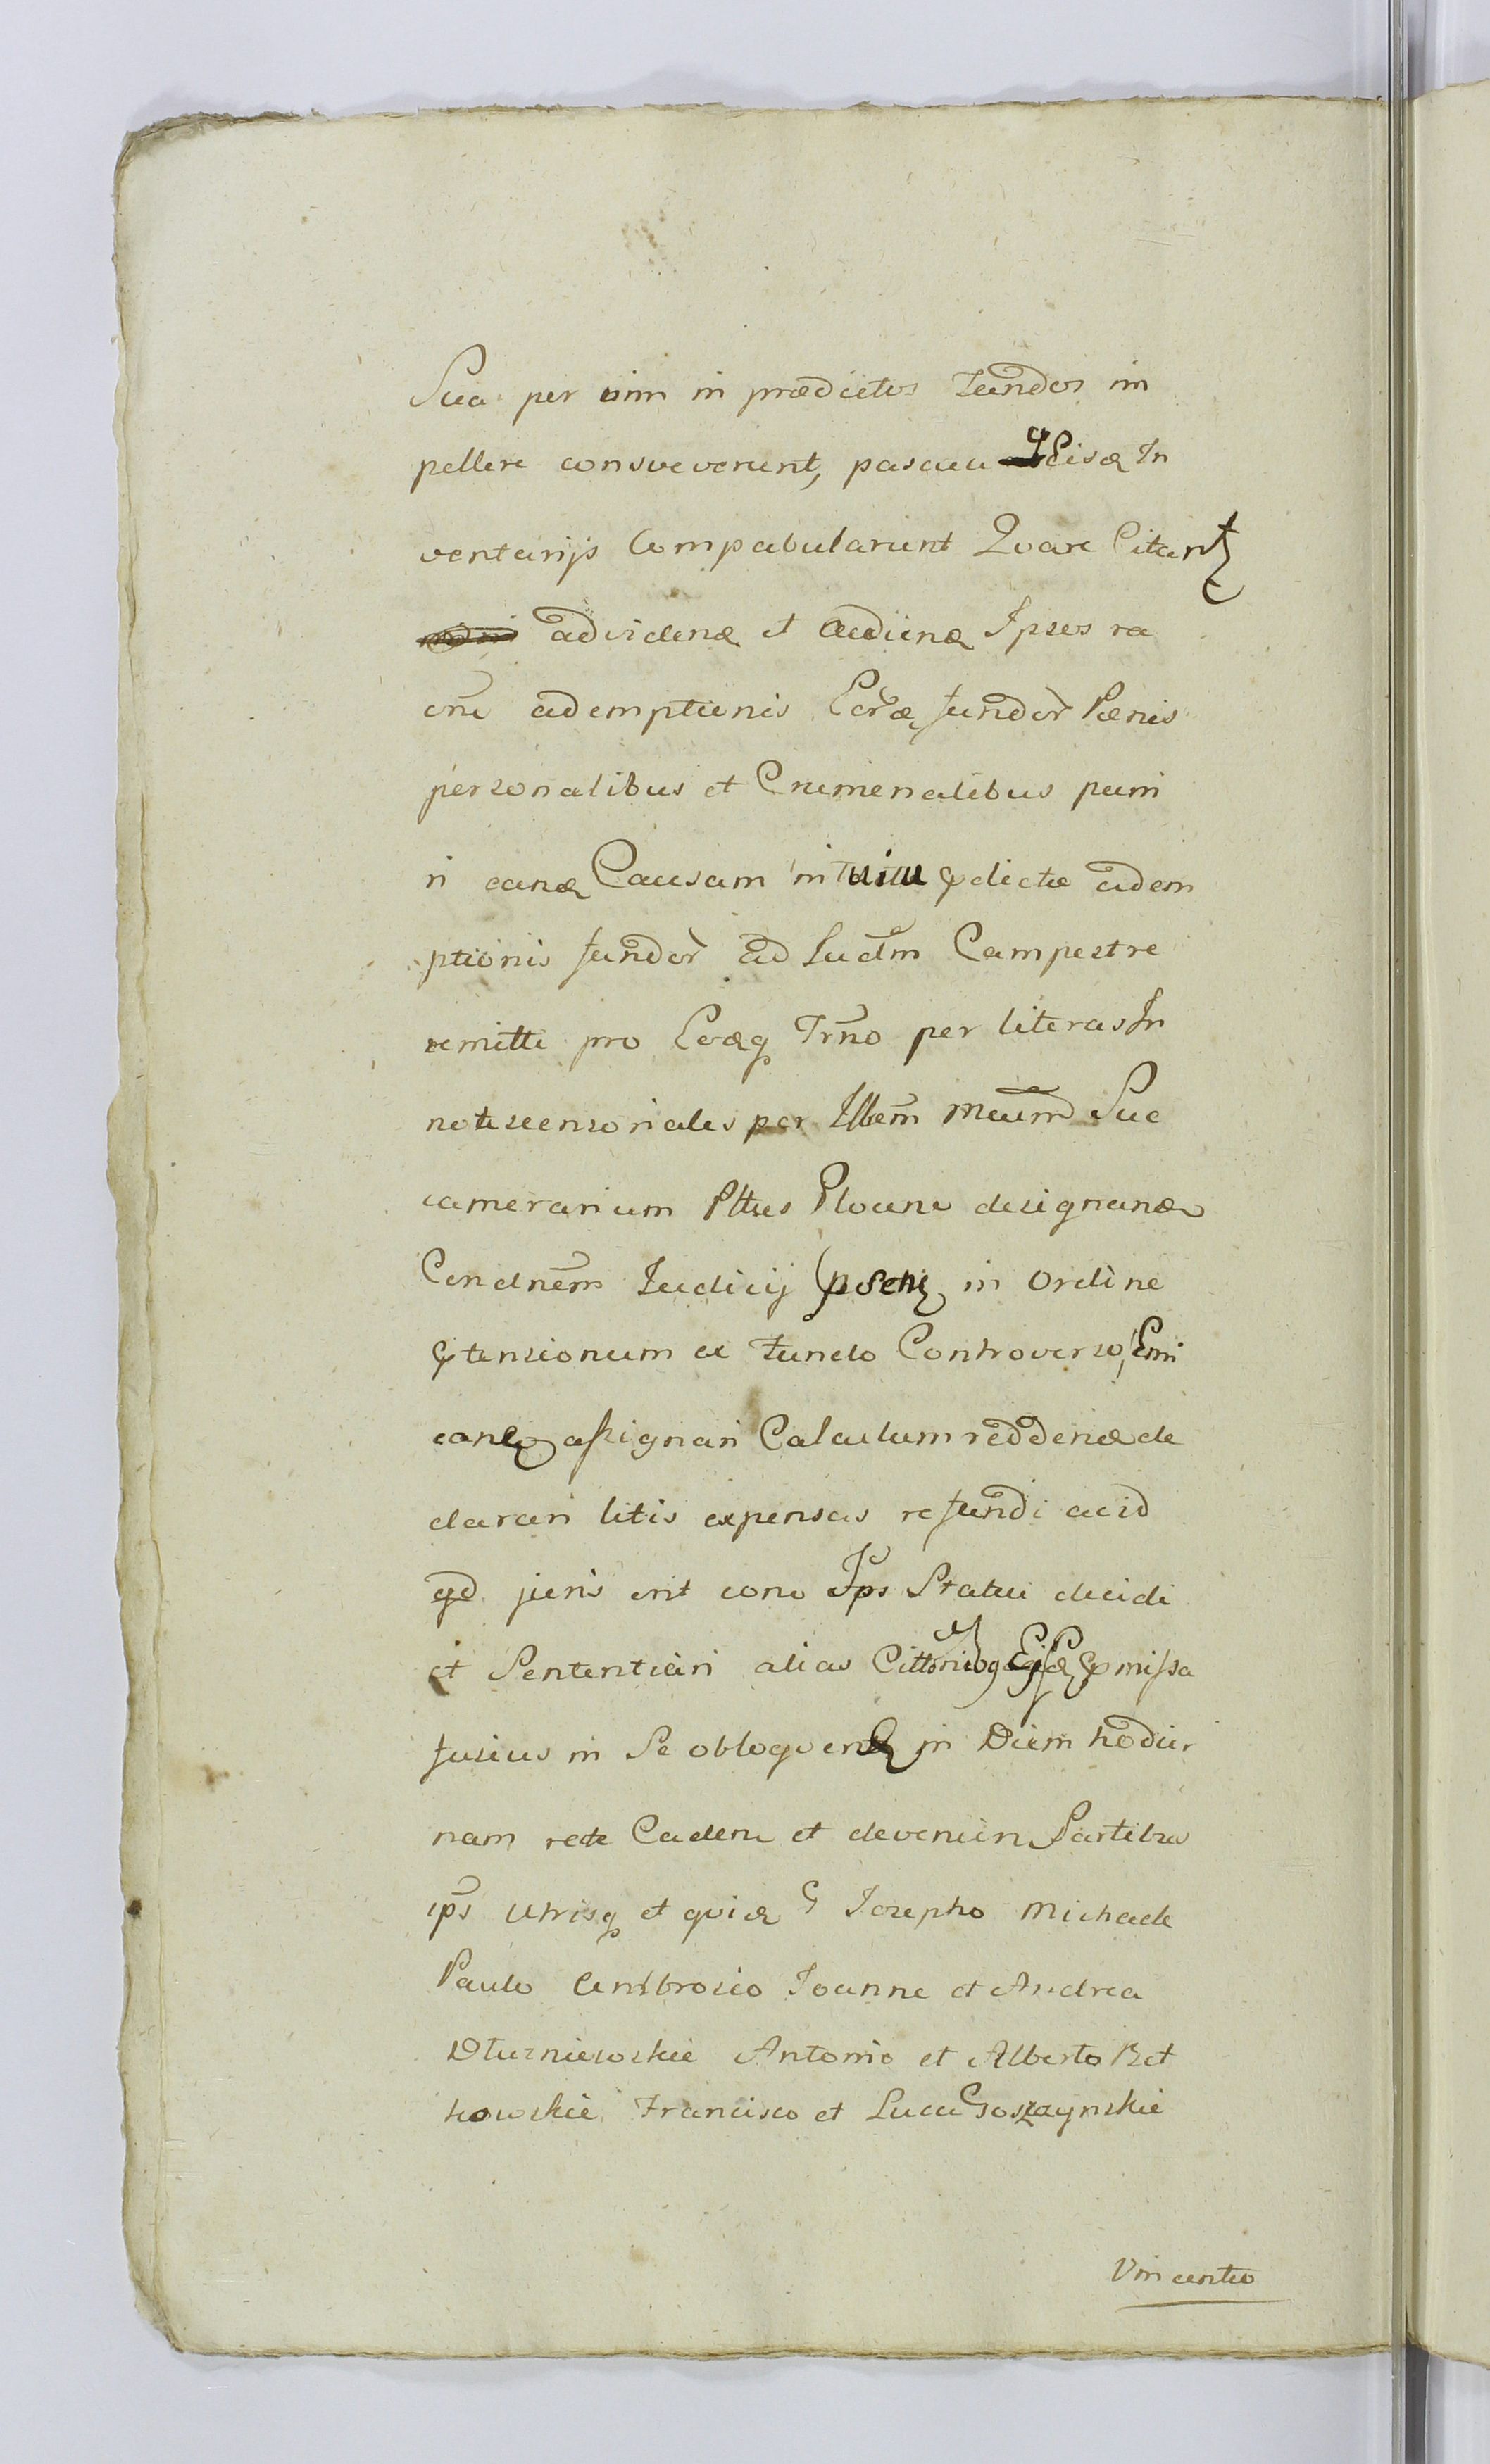 Sua per vim in prædictos Fundos im
pellere consveverunt, pascua Eisq In
ventarijs Compabularunt Qvare Citant
ad vidend et Audiend Ipsos ra
one ademptionis Eorq fundor Pœnis
personalibus et Crumenalibus puni
ri eand Causam intuitu pdictæ adem
ptionis fundor ad Iudm Campestre
remitti pro Eoq Trno per literas In
notescensoriales per Illem Mcum Suc
camerarium Pltus Plocen designand
Condnem Iudicij pscti in Ordine
ptensionum ex Fundo Controverso Emi
can assignari Calculum reddend de
clarari litis expensas refundi acid
qd juris erit conc Ips Statui decidi
et Sententiari alias pmissa
fusius in Se obloqven in Diem hodier
nam recte Caden et devenien Partibus
ips Utrisq et quia G Iosepho Michaele
Paulo Ambrosio Joanne et Andrea
Dłuzniewskie Antonio et Alberto Bet
kowskie Francisco et Luca Goszczynskie
Vincentio